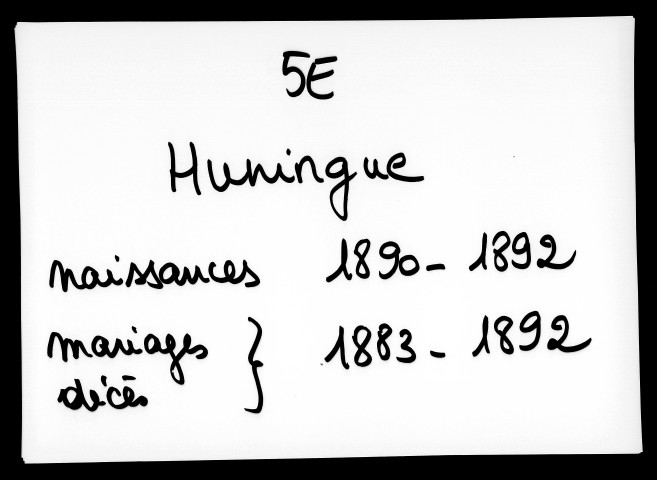 5E
Huningue
naissances 1890 - 1892
mariages } 1883 - 1892
décès